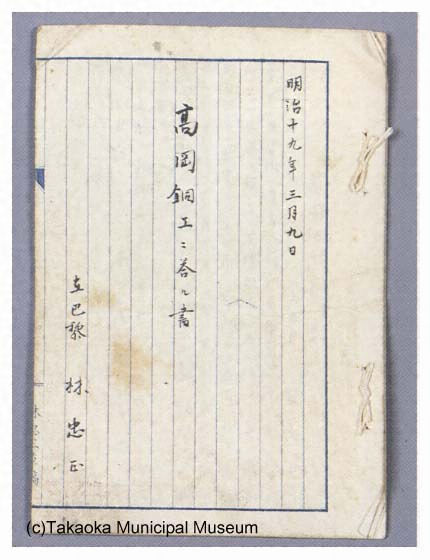 明治十九年三月九日
高岡銅工ニ答ル書
在巴黎 林忠正
(c)Takaoka Municipal Museum